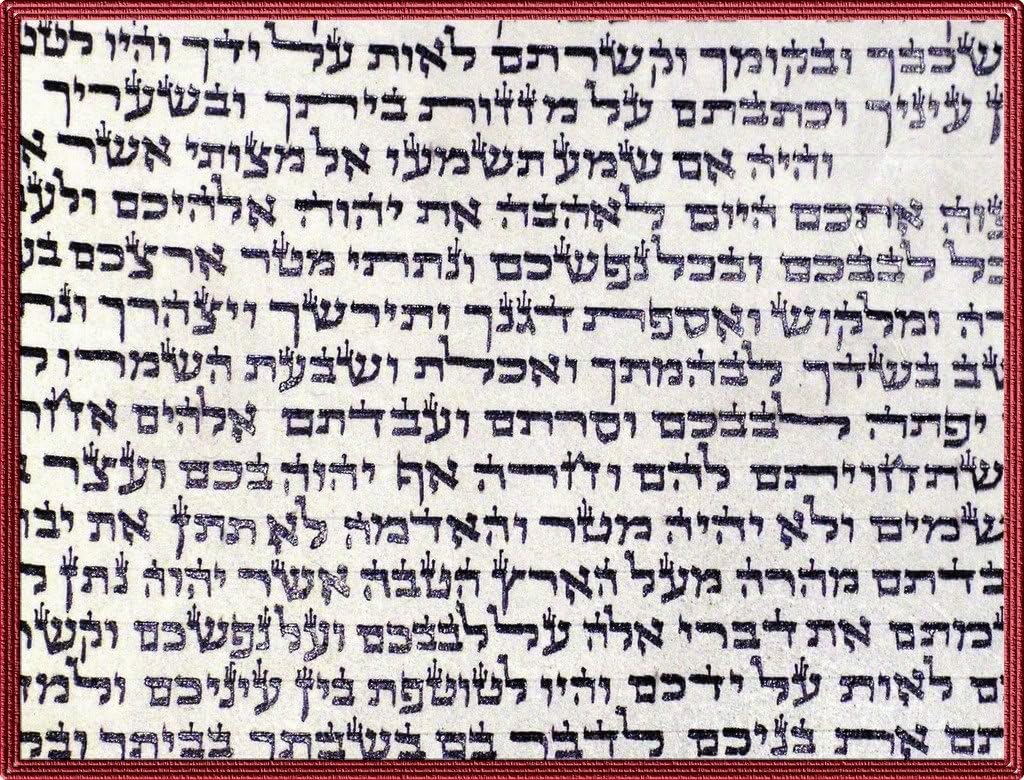 שכבך ובקומך וקשרתם לאות על ידך והיו לטט
ן עיניך וכתבתם על מזזות ביתך ובשעריך
והיה אם שמע תשמעו אל מצותי אשר א
צוה אתכם היום לאהבה את יהוה אלהיכם ולע
כל לבבכם ובכל נפשכם ונתתי מטר ארצכם בע
רה ומלקוש ואספת דגנך ותירשך ויצהרך ונת
שב בשדך לבהמתך ואכלת ושבעת השמרו ל
יפתה לבבכם וסרתם ועבדתם אלהים אחר
שתחויתם להם וחרה אף יהוה בכם ועצר
שמים ולא יהיה מטר והאדמה לא תתן את יבו
בדתם מהרה מעל הארץ הטבה אשר יהוה נתן ל
שמתם את דברי אלה על לבבכם ועל נפשכם וקשר
ם לאות על ידכם והיו לטוטפת בין עיניכם ולמד
תם את בניכם לדבר בם בשבתך בביתך ובל